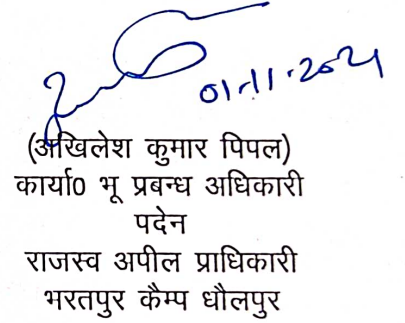 01.11.2021
(अखिलेश कुमार पिपल)
कार्या0 भू प्रबन्ध अधिकारी
पदेन
राजस्व अपील प्राधिकारी
भरतपुर कैम्प धौलपुर